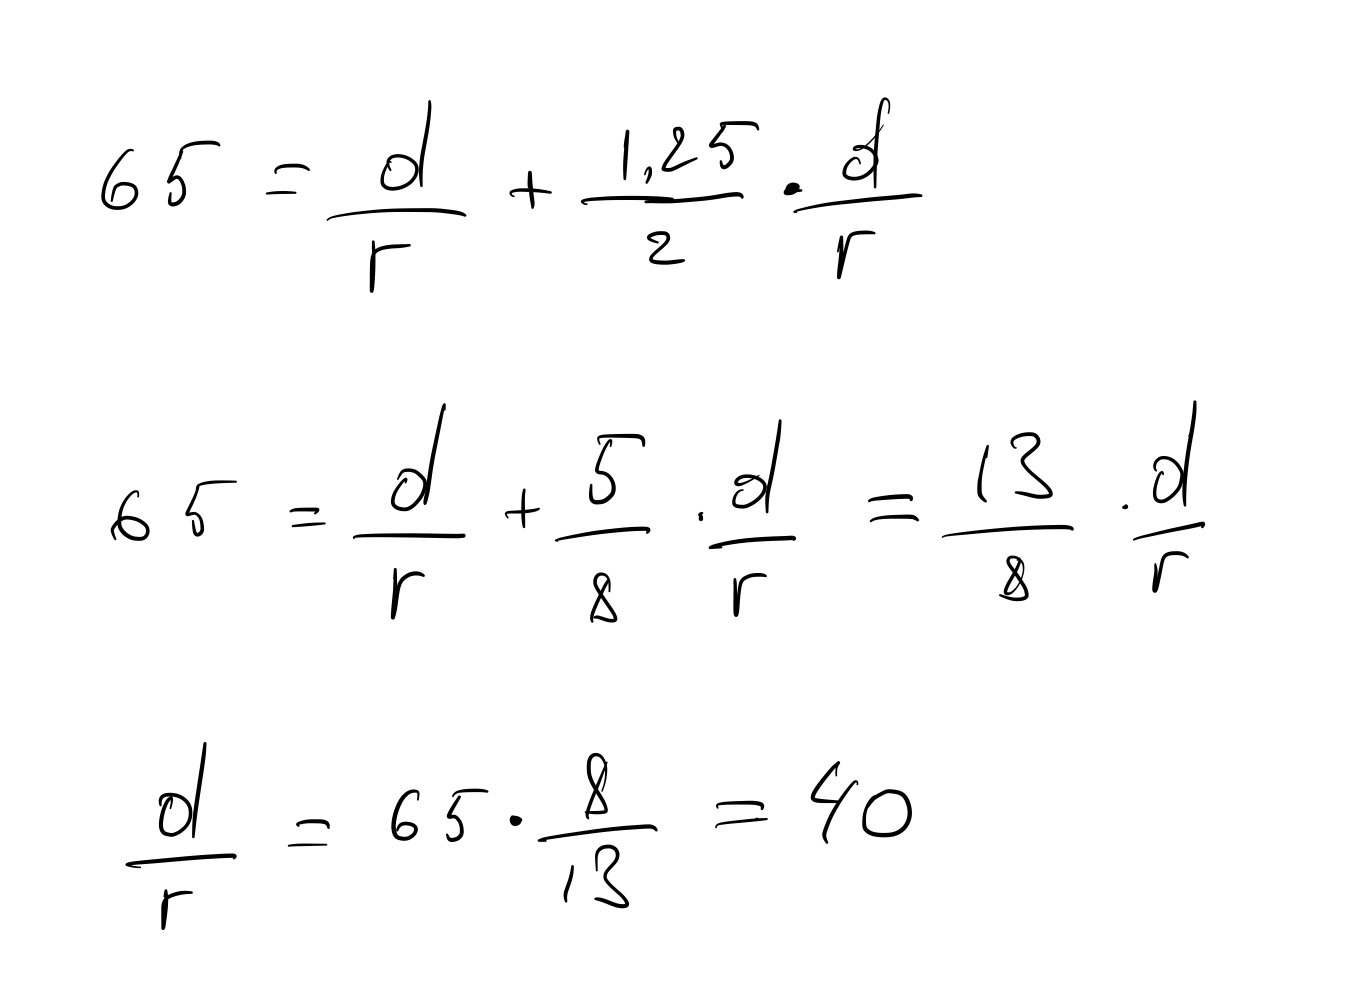 65 = d/r + 1,25/2 · d/r
65 = d/r + 5/8 · d/r = 13/8 · d/r
d/r = 65 · 8/13 = 40